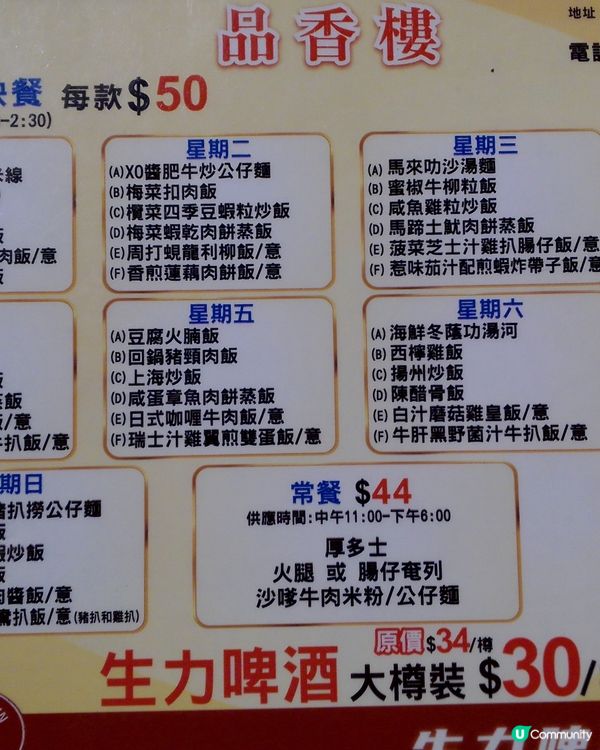 品香樓
地址
電話
快餐 每款$50
-2:30)
米線
飯
肉飯/意
飯
星期二
(A)XO醬肥牛炒公仔麵
(B)梅菜扣肉飯
(C)欖菜四季豆蝦粒炒飯
(D)梅菜蝦乾肉餅蒸飯
(E)周打蜆龍利柳飯/意
(F)香煎蓮藕肉餅飯/意
星期三
(A)馬來叻沙湯麵
(B)蜜椒牛柳粒飯
(C)咸魚雞粒炒飯
(D)馬蹄土魷肉餅蒸飯
(E)菠菜芝士汁雞扒腸仔飯/意
(F)惹味茄汁配煎蝦炸帶子飯/意
飯
飯
/意
扒飯/意
星期五
(A)豆腐火腩飯
(B)回鍋豬頸肉飯
(C)上海炒飯
(D)咸蛋章魚肉餅蒸飯
(E)日式咖喱牛肉飯/意
(F)瑞士汁雞翼煎雙蛋飯/意
星期六
(A)海鮮冬蔭功湯河
(B)西檸雞飯
(C)揚州炒飯
(D)陳醋骨飯
(E)白汁磨菇雞皇飯/意
(F)牛肝黑野菌汁牛扒飯/意
期日
豬扒撈公仔麵
飯
蝦炒飯
飯
肉醬飯/意
鴛扒飯/意(豬扒和雞扒)
常餐 $44
供應時間:中午11:00-下午6:00
厚多士
火腿 或 腸仔奄列
沙嗲牛肉米粉/公仔麵
原價$34/樽
生力啤酒 大樽裝 $30/
生力啤
U Community